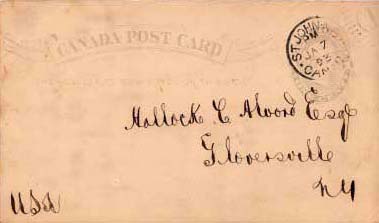 CANADA POST CARD
ST JOHN
PM
JA 7
92
CAN
Hollock C Alvord Esq
Gloversville
NY
USA